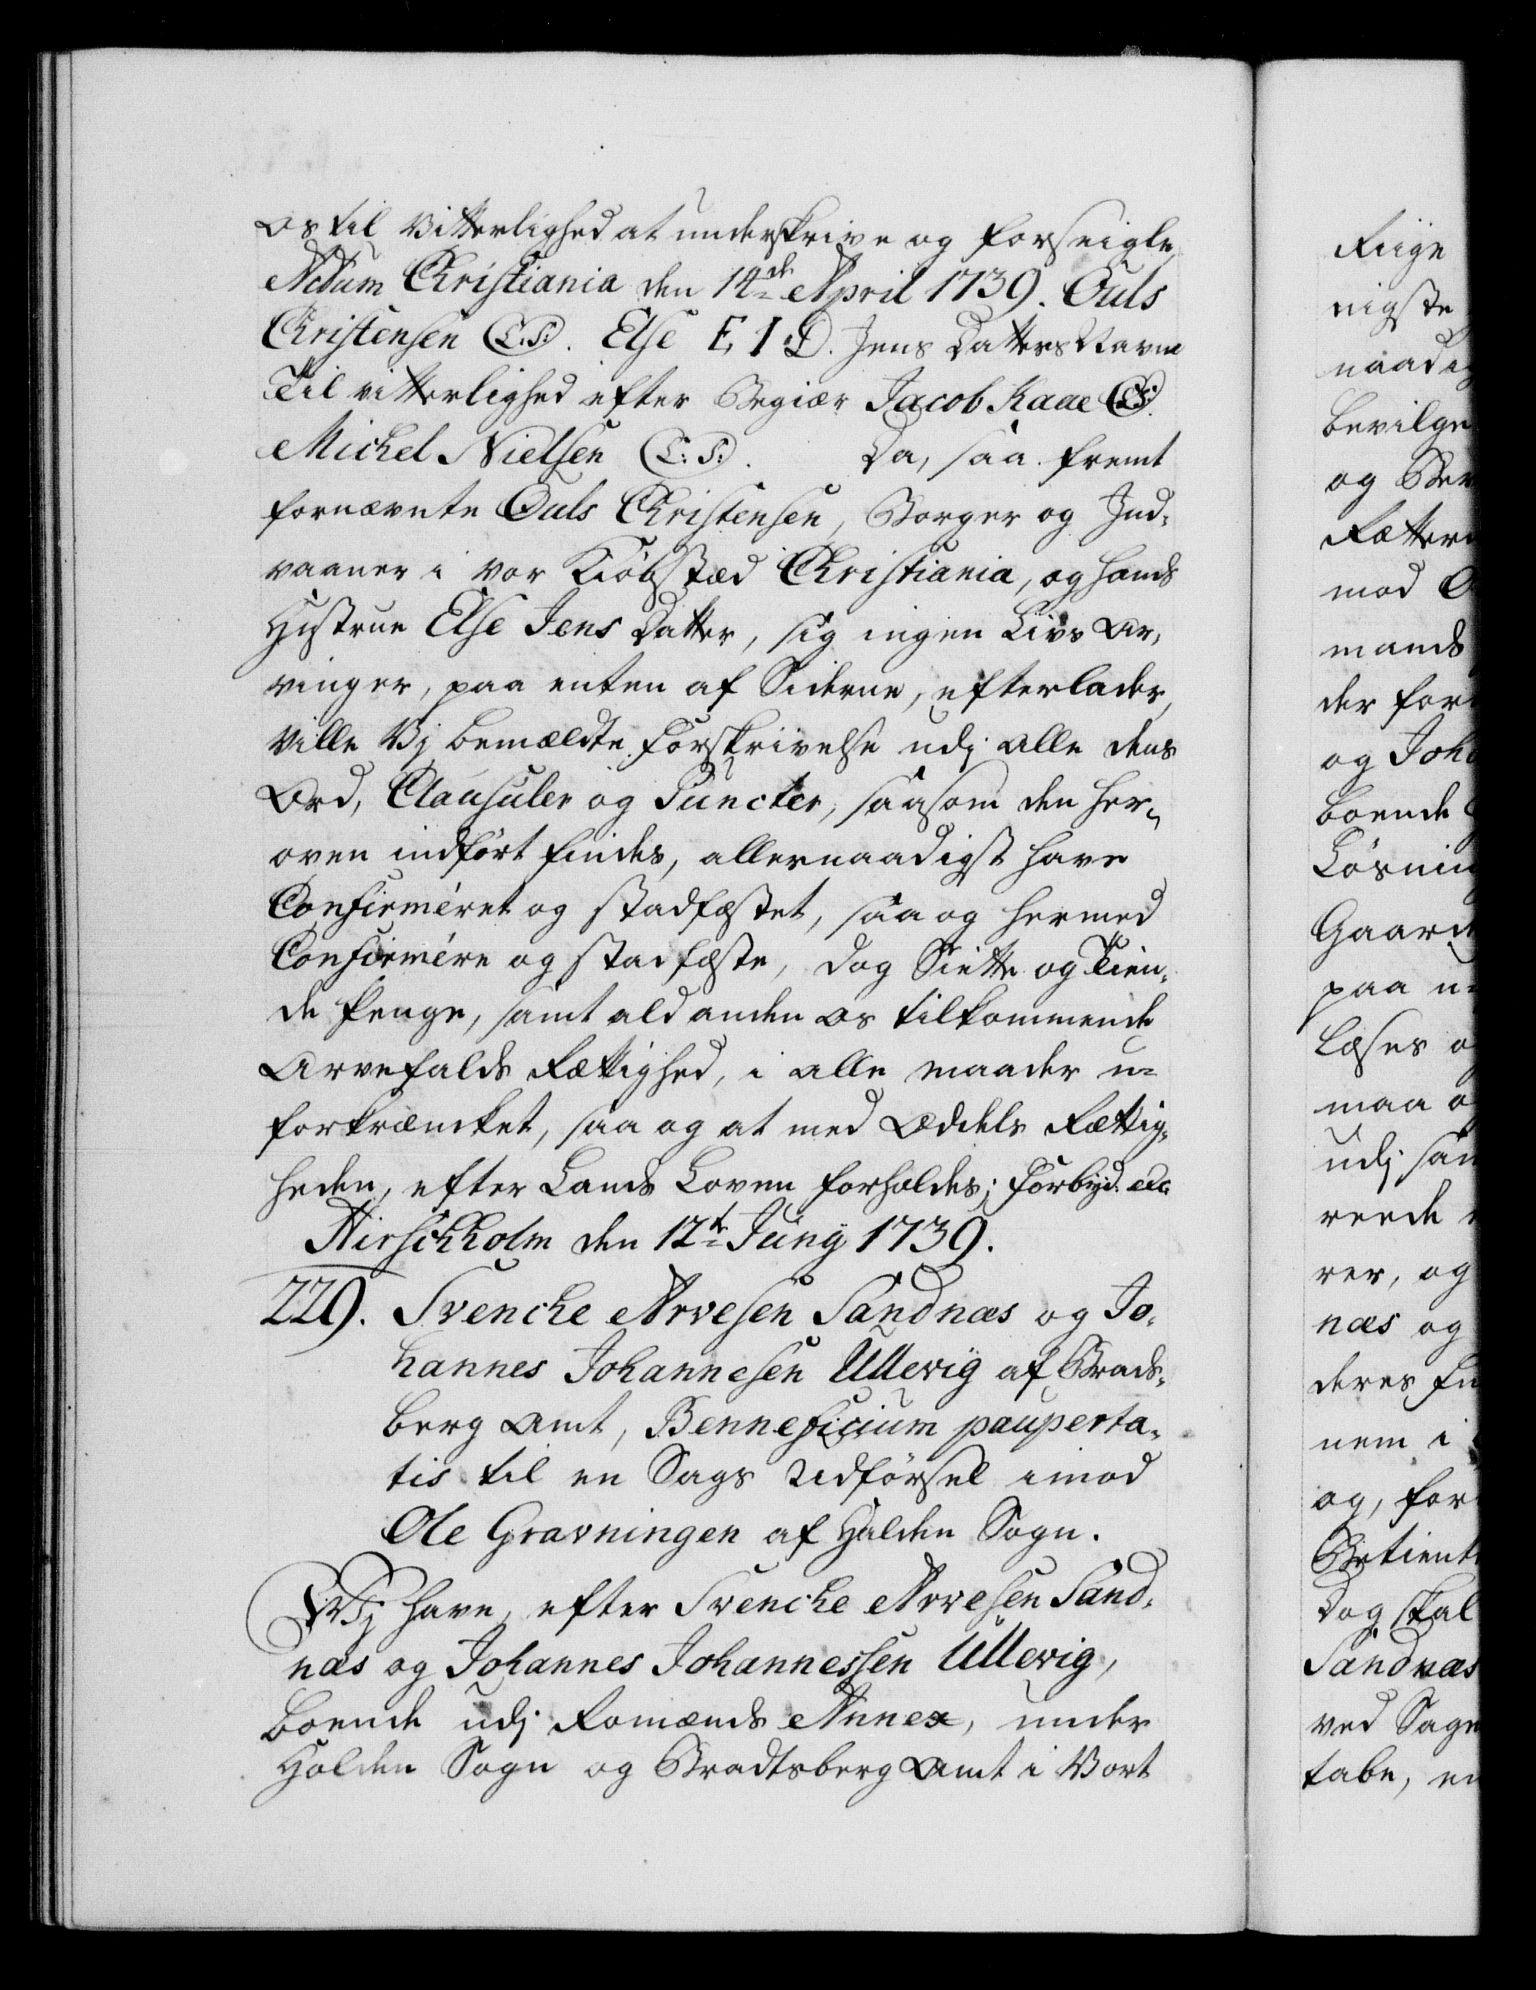 os til Vitterlighed at underskrive og forseigle
Actum Christiania den 14de April 1739. Ouls
Christensen (L.S.). Else E I D. Jens Datters Navne
Til vitterlighed efter Begiær Jacob Kaae (L.S.)
Michel Nielsen (L.S.). Da, saa fremt
fornævnte Ouls Christensen, Borger og Ind-
vaaner i vor Kiøbstæd Christiania, og hands
Hustrue Else Jens Datter, sig ingen Livs Ar-
vinger, paa enten af Siderne, efterlader,
Ville Vj bemældte forskrivelse udj alle dens
Ord, Clausuler og Puncter, saasom den her-
oven indført findes, allernaadigst have
Confirmeret og stadfæstet, saa og hermed
Confirmere og stadfæste, dog Siette og Tien-
de Penge, samt ald anden os tilkommende
Arvefalds Rættighed, i alle maader u-
forkræncket, saa og at med Oddels Rættig-
heden, efter Lands Loven forholdes; Forbyd. etc.
Hirschholm den 12te Junij 1739.
229. Svencke Arvesen Sandnæs og Jo-
hannes Johannesen Ullevig af Brads-
berg Amt, Benneficium pauperta-
tis til en Sags Udførsel imod
Ole Gravningen af Holden Sogn.
Vj have, efter Svencke Arvesen Sand-
næs og Johannes Johannessen Ullevig,
boende udj Romænds Annex, under
Holden Sogn og Bradtsberg Amt i Vort
Riige
nigste
naadig
bevilge
og Bev
Rætter
mod O
mands
der for
og Joh
boende
Løsnin
Gaard
paa
læses
maa
udj
reende
rer, og
næs og
deres
nem i
og, for
Betient
Dog skal
Sandnæs
ved Sagn
tabe, en